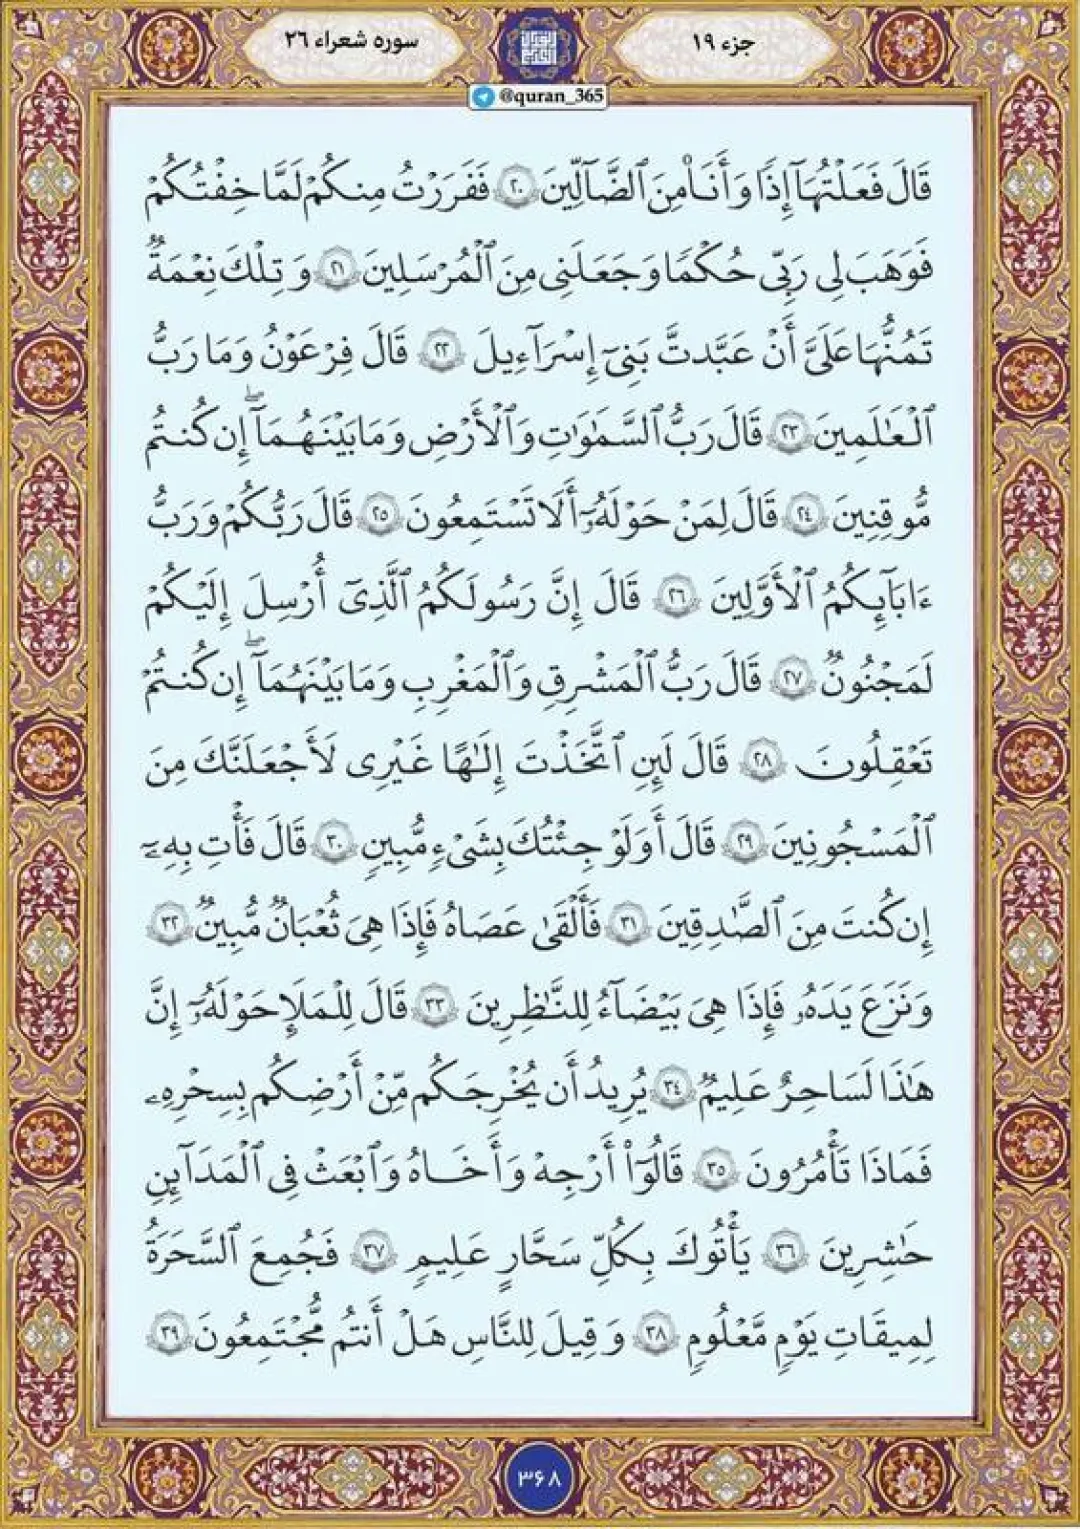 جزء ۱۹
سوره شعراء ۲۶
@quran_365
قَالَ فَعَلْتُهَآ إِذًا وَأَنَا۠ مِنَ ٱلضَّآلِّينَ ۲۰ فَفَرَرْتُ مِنكُمْ لَمَّا خِفْتُكُمْ
فَوَهَبَ لِى رَبِّى حُكْمًا وَجَعَلَنِى مِنَ ٱلْمُرْسَلِينَ ۲۱ وَتِلْكَ نِعْمَةٌ
تَمُنُّهَا عَلَىَّ أَنْ عَبَّدتَّ بَنِىٓ إِسْرَآءِيلَ ۲۲ قَالَ فِرْعَوْنُ وَمَا رَبُّ
ٱلْعَٰلَمِينَ ۲۳ قَالَ رَبُّ ٱلسَّمَٰوَٰتِ وَٱلْأَرْضِ وَمَا بَيْنَهُمَآ ۖ إِن كُنتُم
مُّوقِنِينَ ۲٤ قَالَ لِمَنْ حَوْلَهُۥٓ أَلَا تَسْتَمِعُونَ ۲۵ قَالَ رَبُّكُمْ وَرَبُّ
ءَابَآئِكُمُ ٱلْأَوَّلِينَ ۲۶ قَالَ إِنَّ رَسُولَكُمُ ٱلَّذِىٓ أُرْسِلَ إِلَيْكُمْ
لَمَجْنُونٌ ۲۷ قَالَ رَبُّ ٱلْمَشْرِقِ وَٱلْمَغْرِبِ وَمَا بَيْنَهُمَآ ۖ إِن كُنتُمْ
تَعْقِلُونَ ۲۸ قَالَ لَئِنِ ٱتَّخَذْتَ إِلَٰهًا غَيْرِى لَأَجْعَلَنَّكَ مِنَ
ٱلْمَسْجُونِينَ ۲۹ قَالَ أَوَلَوْ جِئْتُكَ بِشَىْءٍ مُّبِينٍ ۳۰ قَالَ فَأْتِ بِهِۦٓ
إِن كُنتَ مِنَ ٱلصَّٰدِقِينَ ۳۱ فَأَلْقَىٰ عَصَاهُ فَإِذَا هِىَ ثُعْبَانٌ مُّبِينٌ ۳۲
وَنَزَعَ يَدَهُۥ فَإِذَا هِىَ بَيْضَآءُ لِلنَّٰظِرِينَ ۳۳ قَالَ لِلْمَلَإِ حَوْلَهُۥٓ إِنَّ
هَٰذَا لَسَٰحِرٌ عَلِيمٌ ۳٤ يُرِيدُ أَن يُخْرِجَكُم مِّنْ أَرْضِكُم بِسِحْرِهِۦ
فَمَاذَا تَأْمُرُونَ ۳۵ قَالُوٓا۟ أَرْجِهْ وَأَخَاهُ وَٱبْعَثْ فِى ٱلْمَدَآئِنِ
حَٰشِرِينَ ۳۶ يَأْتُوكَ بِكُلِّ سَحَّارٍ عَلِيمٍ ۳۷ فَجُمِعَ ٱلسَّحَرَةُ
لِمِيقَٰتِ يَوْمٍ مَّعْلُومٍ ۳۸ وَقِيلَ لِلنَّاسِ هَلْ أَنتُم مُّجْتَمِعُونَ ۳۹
۳۶۸